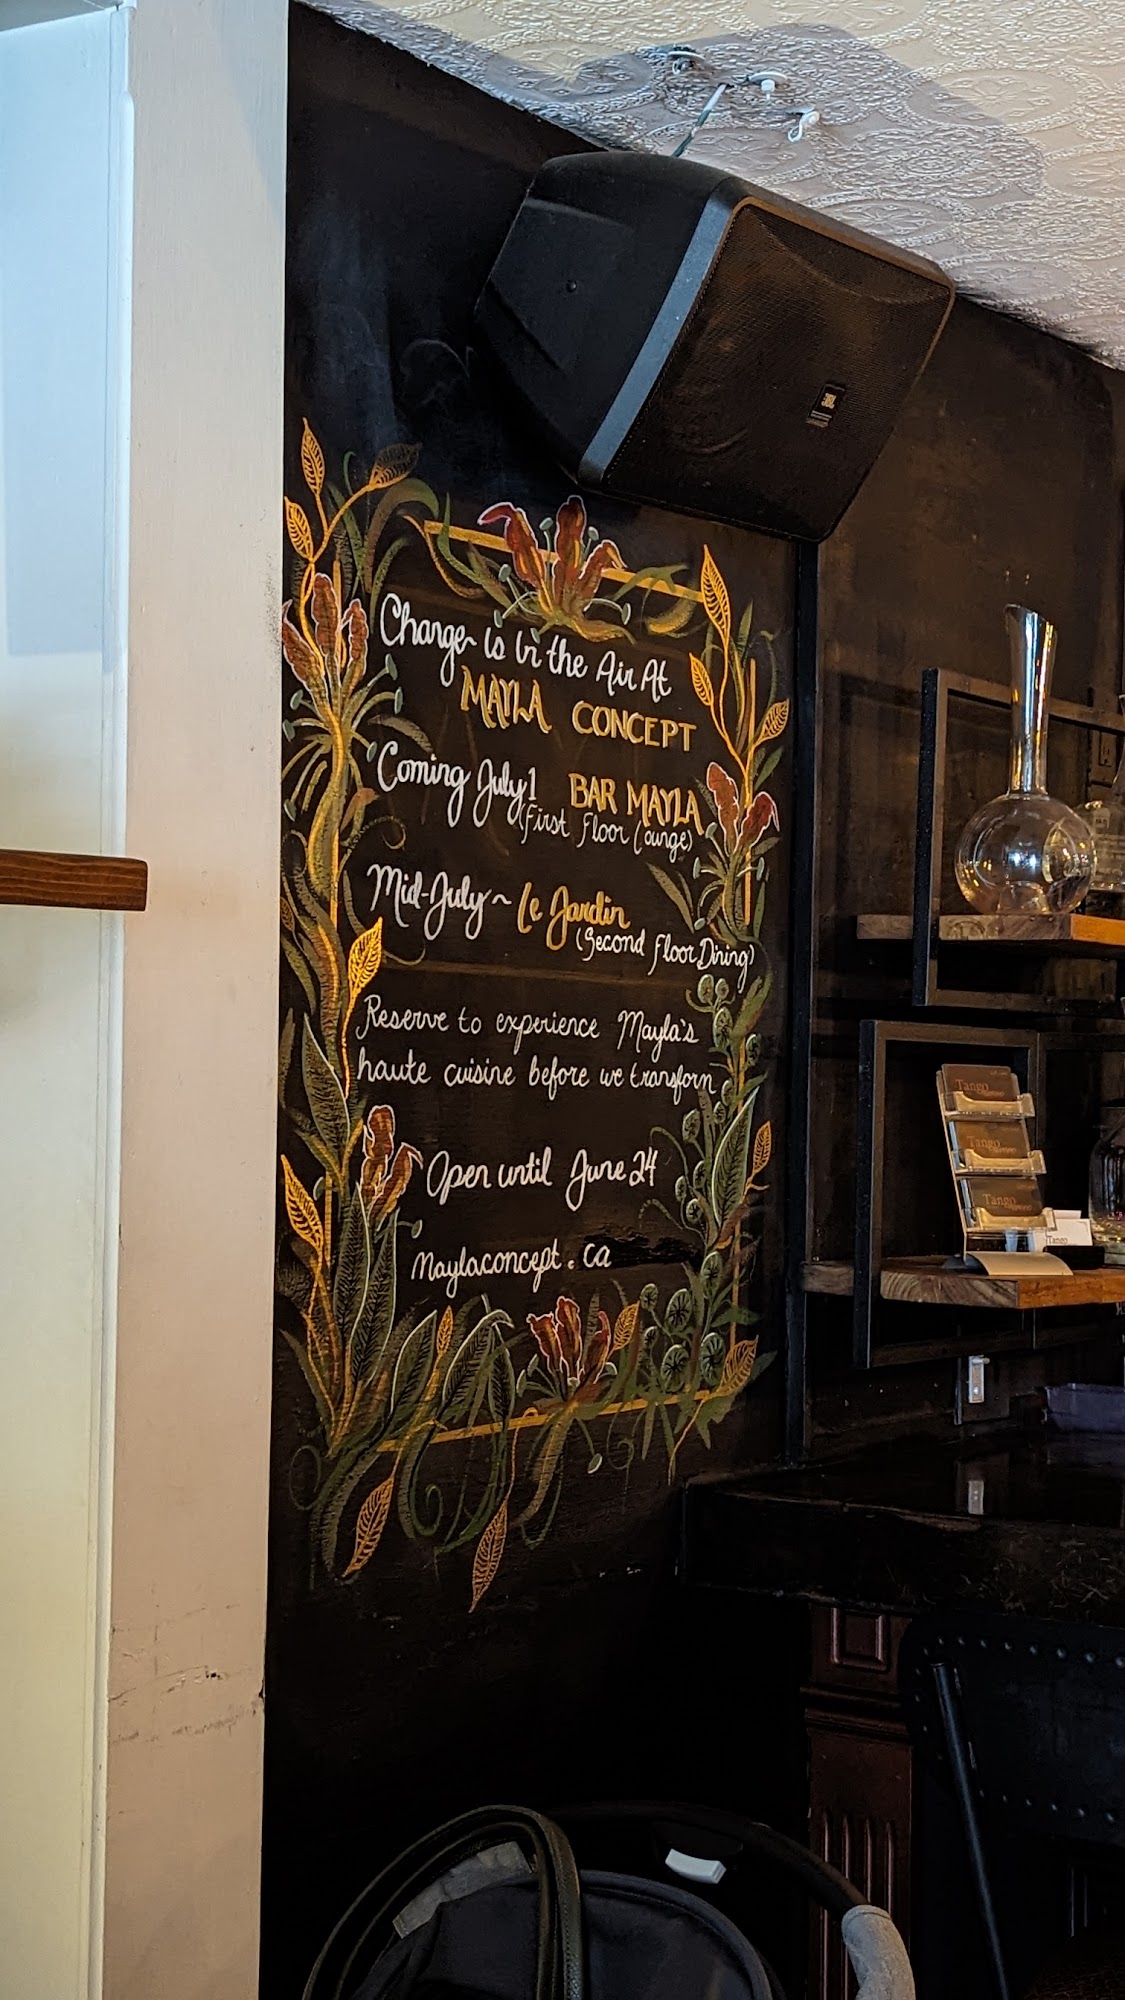 JBL
Change is in the Air At
MAYLA CONCEPT
Coming July 1 BAR MAYLA
(First Floor Lounge)
Mid-July ~ Le Jardin
(Second Floor Dining)
Reserve to experience Mayla's
haute cuisine before we transform
Open until June 24
Maylaconcept.ca
Tango
Tango
Tango
Tango